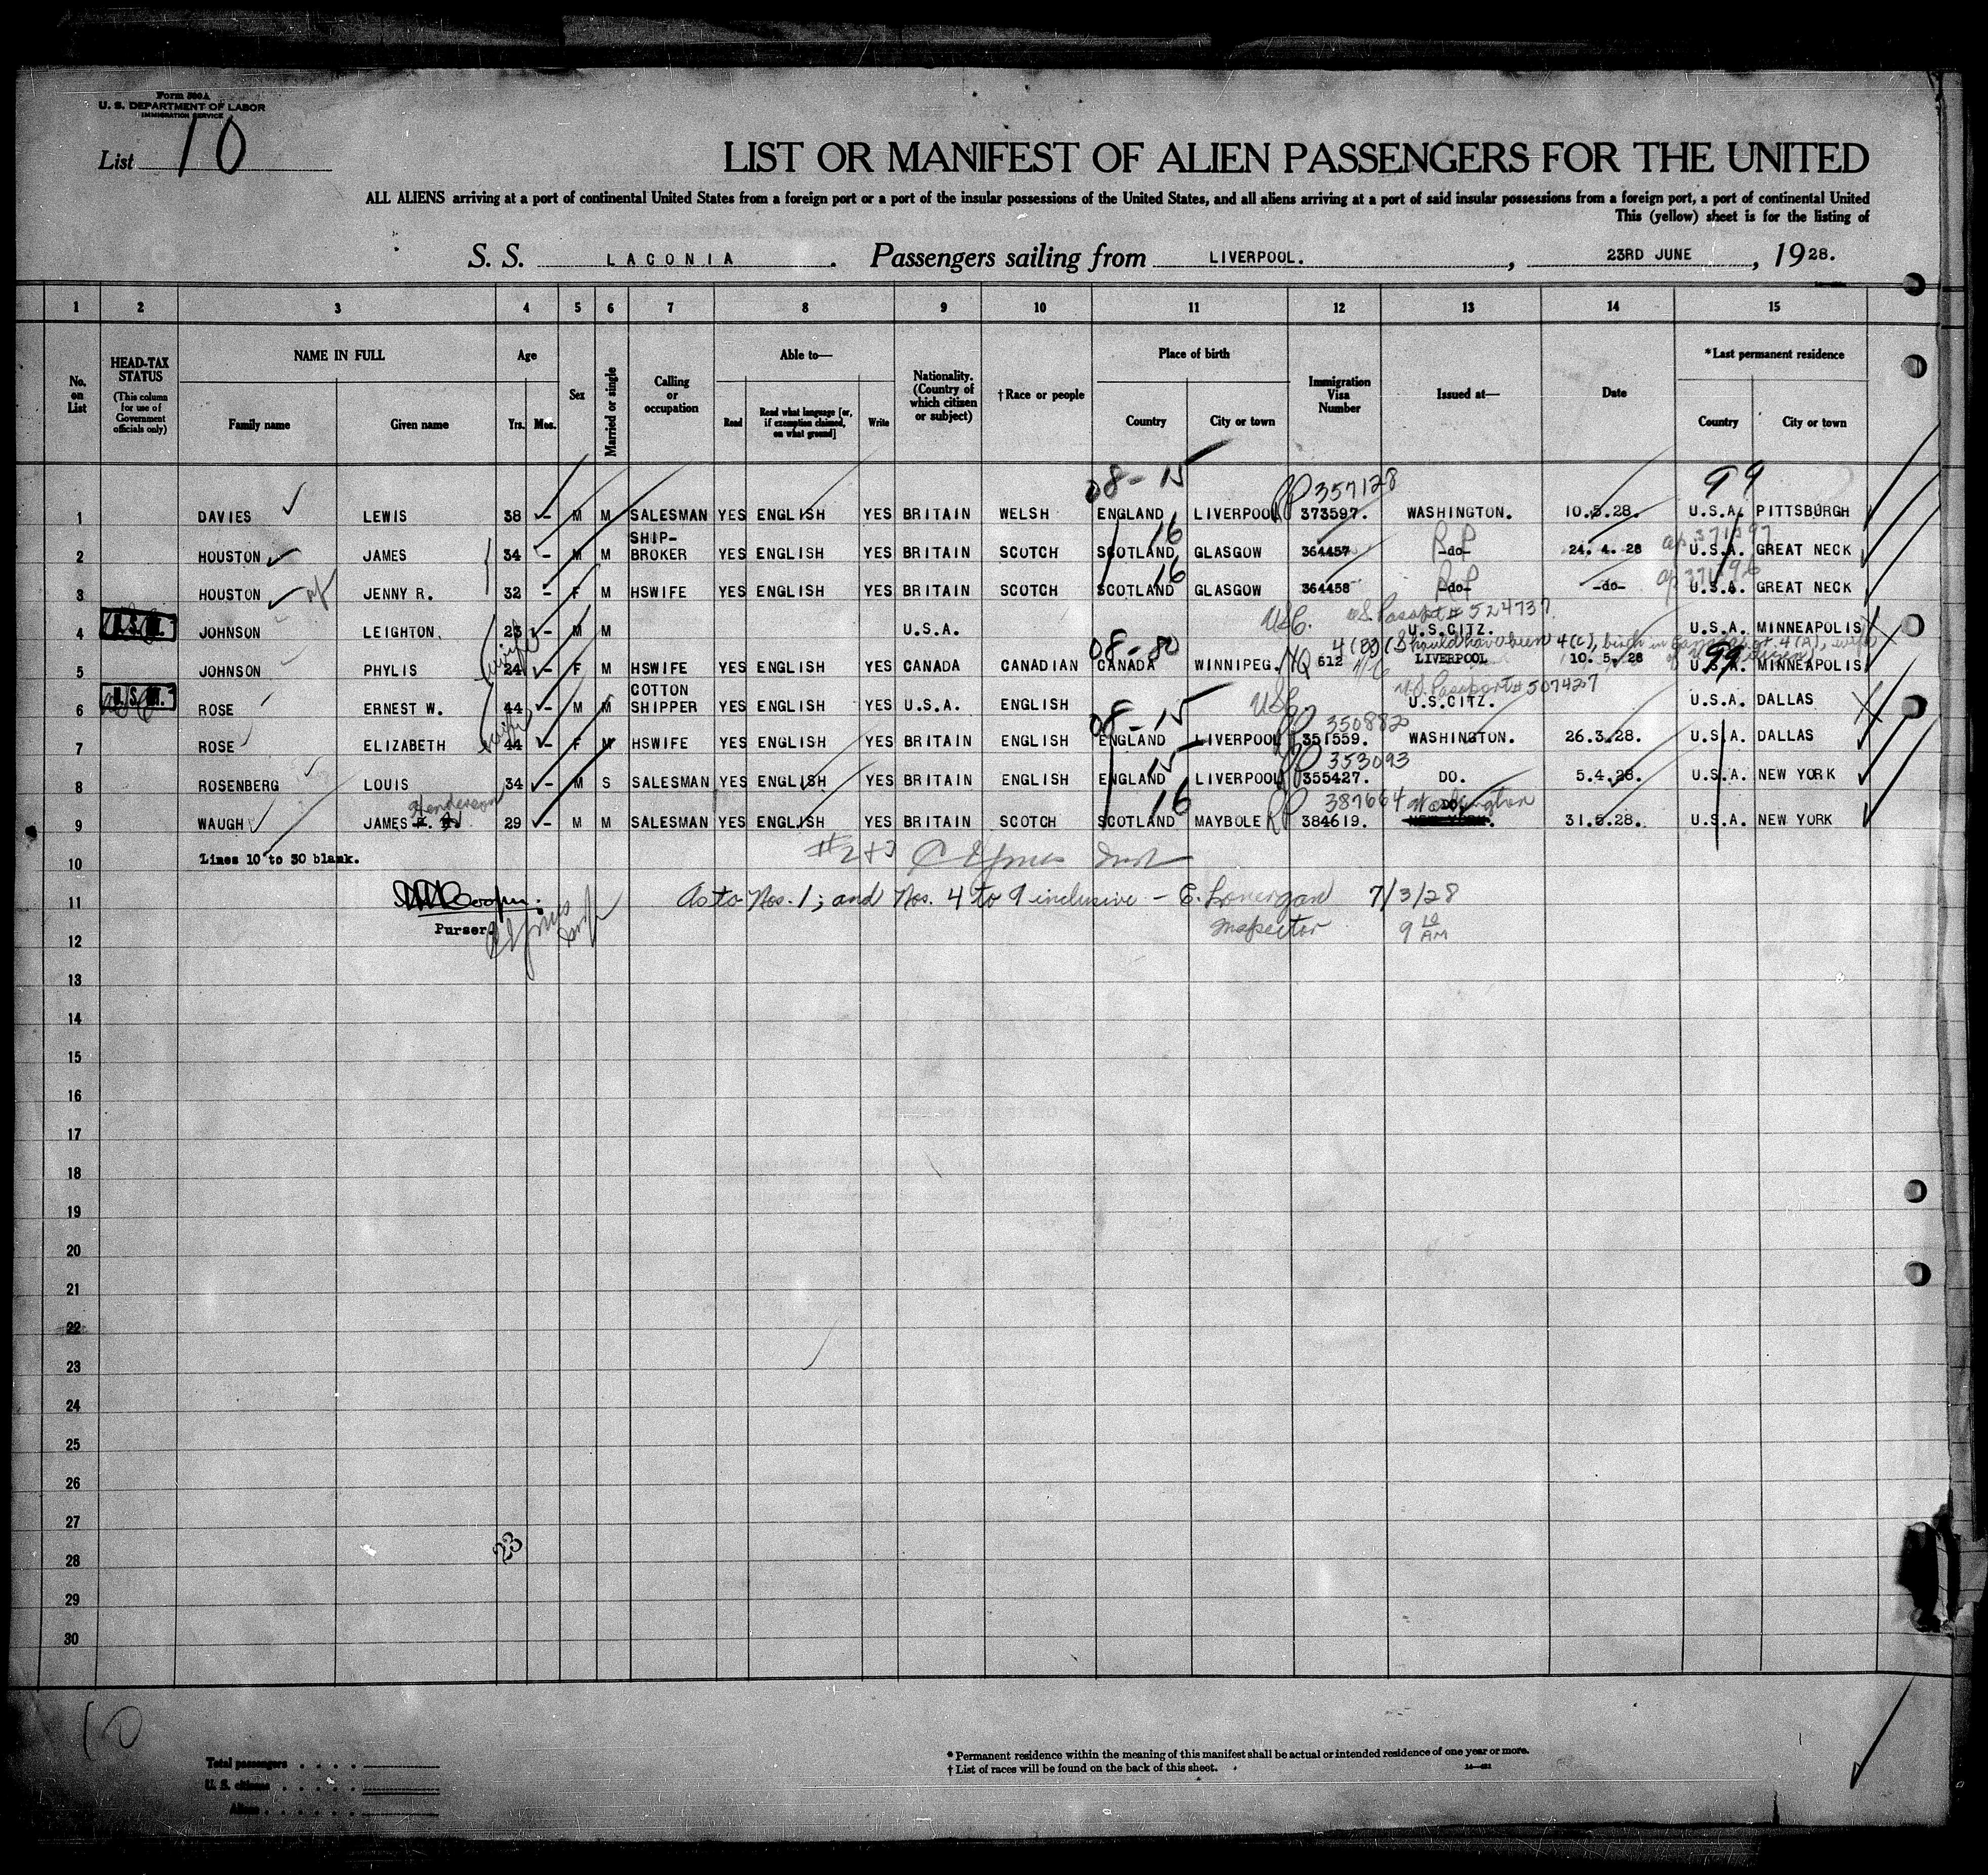 Form 500A
U. S. DEPARTMENT OF LABOR
IMMIGRATION SERVICE
List 10
LIST OR MANIFEST OF ALIEN PASSENGERS FOR THE UNITED
ALL ALIENS arriving at a port of continental United States from a foreign port or a port of the insular possessions of the United States, and all aliens arriving at a port of said insular possessions from a foreign port, a port of continental United
This (yellow) sheet is for the listing of
S. S. LACONIA. Passengers sailing from LIVERPOOL., 23RD JUNE, 1928.
1 2 3 4 5 6 7 8 9 10 11 12 13 14 15
No. on List
HEAD-TAX STATUS (This column for use of Government officials only)
NAME IN FULL Family name Given name
Age Yrs. Mos.
Sex
Married or single
Calling or occupation
Able to— Read Read what language [or, if exemption claimed, on what ground] Write
Nationality. (Country of which citizen or subject)
†Race or people
Place of birth Country City or town
Immigration Visa Number
Issued at—
Date
*Last permanent residence Country City or town
08-15 RP 357128 99
1 DAVIES LEWIS 38 - M M SALESMAN YES ENGLISH YES BRITAIN WELSH ENGLAND LIVERPOOL 373597. WASHINGTON. 10.5.28. U.S.A. PITTSBURGH
16 RP 371597
2 HOUSTON JAMES 34 - M M SHIP-BROKER YES ENGLISH YES BRITAIN SCOTCH SCOTLAND GLASGOW 364457 -do- 24. 4. 28 U.S.A. GREAT NECK
16 RP 371596
3 HOUSTON JENNY R. 32 - F M HSWIFE YES ENGLISH YES BRITAIN SCOTCH SCOTLAND GLASGOW 364458 -do- -do- U.S.A. GREAT NECK
USC. U.S. Passpt # 524737
4 U.S. JOHNSON LEIGHTON. 23 - M M U.S.A. U.S.CITZ. U.S.A. MINNEAPOLIS
08-80 NQ 4(B) (Should have been 4(c), birth in Canada, or 4(A), wife of citizen) 99
5 JOHNSON PHYLIS wife 24 - F M HSWIFE YES ENGLISH YES CANADA CANADIAN CANADA WINNIPEG. 612 LIVERPOOL 10. 5. 28 U.S.A. MINNEAPOLIS
USC U.S. Passport # 507427
6 U.S. ROSE ERNEST W. 44 - M M COTTON SHIPPER YES ENGLISH YES U.S.A. ENGLISH U.S.CITZ. U.S.A. DALLAS
08-15 RP 350882
7 ROSE ELIZABETH wife 44 - F M HSWIFE YES ENGLISH YES BRITAIN ENGLISH ENGLAND LIVERPOOL 351559. WASHINGTON. 26.3.28. U.S.A. DALLAS
15 RP 353093
8 ROSENBERG LOUIS 34 - M S SALESMAN YES ENGLISH YES BRITAIN ENGLISH ENGLAND LIVERPOOL 355427. DO. 5.4.28. U.S.A. NEW YORK
Henderson 16 RP 387664 Washington
9 WAUGH JAMES 29 - M M SALESMAN YES ENGLISH YES BRITAIN SCOTCH SCOTLAND MAYBOLE 384619. DO. NEW YORK. 31.5.28. U.S.A. NEW YORK
10 Lines 10 to 30 blank. #2+3
11 As to Nos. 1; and Nos. 4 to 9 inclusive - E. Lonergan 7/3/28
Purser. Inspector 9 10 AM
12
13
14
15
16
17
18
19
20
21
22
23
24
25
26
27
23
28
29
30
10
Total passengers
U. S. citizens
Aliens
*Permanent residence within the meaning of this manifest shall be actual or intended residence of one year or more.
†List of races will be found on the back of this sheet.